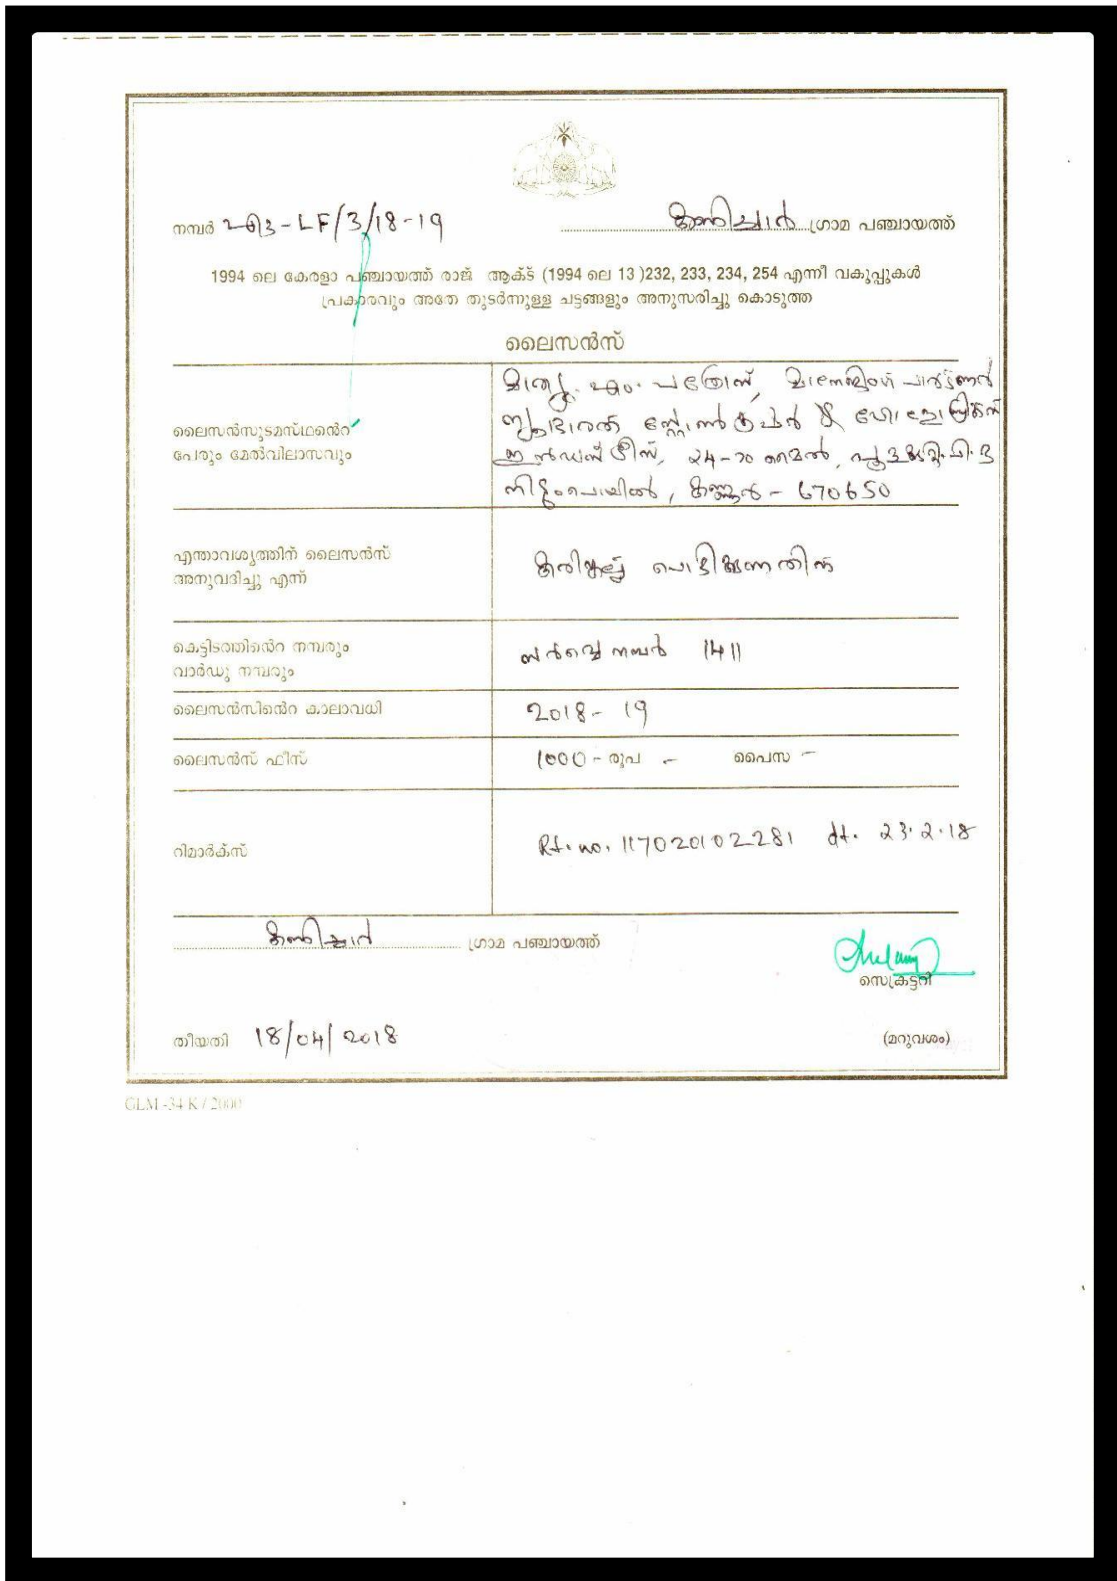 നമ്പർ LF/3/18-19
കണിച്ചാർ ഗ്രാമ പഞ്ചായത്ത്
1994 ലെ കേരളാ പഞ്ചായത്ത് രാജ് ആക്ട് (1994 ലെ 13 )232, 233, 234, 254 എന്നീ വകുപ്പുകൾ
പ്രകാരവും അതേ തുടർന്നുള്ള ചട്ടങ്ങളും അനുസരിച്ചു കൊടുത്ത
ലൈസൻസ്
ലൈസൻസുടമസ്ഥന്റെ
പേരും മേൽവിലാസവും
മാത്യു. എം. പത്രോസ്, മാനേജിംഗ് പാർട്ണർ
ന്യൂഭാരത് സ്റ്റോൺ ക്രഷർ &
ഇൻഡസ്ട്രീസ്, 24-ാം മൈൽ,
നിടുംപൊയിൽ, കണ്ണൂർ - 670650
എന്താവശ്യത്തിന് ലൈസൻസ്
അനുവദിച്ചു എന്ന്
കരിങ്കല്ല് പൊട്ടിക്കുന്നതിന്
കെട്ടിടത്തിന്റെ നമ്പരും
വാർഡു നമ്പരും
സർവ്വെ നമ്പർ 1411
ലൈസൻസിന്റെ കാലാവധി
2018 - 19
ലൈസൻസ് ഫീസ്
1000 - രൂപ - പൈസ -
റിമാർക്സ്
Rt. no. 117020102281 dt. 23.2.18
കണിച്ചാർ ഗ്രാമ പഞ്ചായത്ത്
സെക്രട്ടറി
തീയതി 18/04/2018
(മറുവശം)
GLM -34 K / 2000